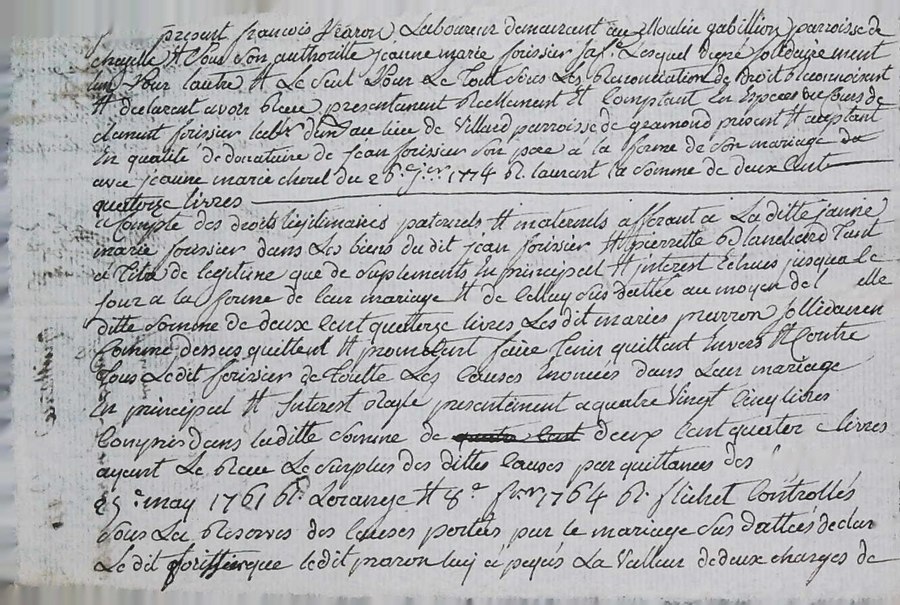 present françois pearon Laboureur demeurant au Moulin gabillion parroisse de
cheville et Sous Son authoritté jeanne marie forissier sa fe Lesquel de gré Solidairement
Lun Pour Lautre et Le Seul Pour Le Tout Sous Les Renonciation de Droit Reconnoissent
et declarent avoir Reçu presentement Reellement et Comptant En Especes du Cours de
clement forissier du lieu de Villard parroisse de gramond present et acceptant
En qualité de donataire de jean forissier Son pere à la forme de Son mariage
avec jeanne marie cherel du 26e 1774 Rt. laurant la Somme de deux Cent
quatorze livres
à Compte des droits legitimaires paternels et maternels afferant à La ditte jeanne
marie forissier dans Les biens du dit jean forissier et pierrette Blanchard Tant
à Titre de legitime que de Suplements En principal et interest Echues jusqua ce
jour à la forme de leur mariage et de Celluy Sus datté au moyen de elle
ditte Somme de deux Cent quattorze livres Les dit mariés pearron Sollidairem
Comme dessus quittent et promettent faire Tenir quittant Envers et Contre
Tous Le dit forissier de Toutte Les Causes Enoncées dans Leur mariage
En principal et Interest Reglé presentement à quatre Vingt Cinq livres
Compris dans laditte Somme de quatre Cent deux Cent quatorze livres
ayant Le Reçu Le Surplus des dittes Causes par quittances des
25e may 1761 Rt. Lorange et 8e 1764 Rt. flichet Contrôllés
Sous La Reserves des Causes portées par le mariage Sus dattés declar
Le dit forissier que ledit pearon luy à payés La Valleur de deux charges de